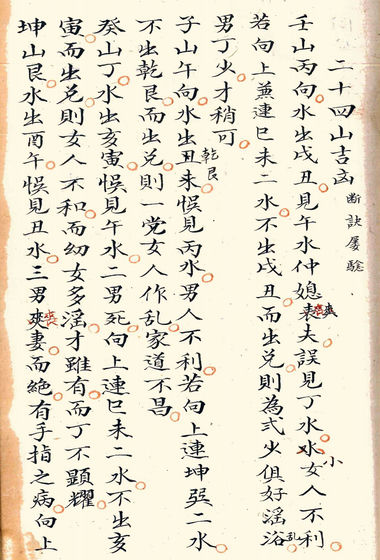 二十四山吉凶 断訣屡驗
壬山丙向水出戌丑見午水仲媳丧夫誤見丁水水女人不利
若向上兼連巳未二水不出戌丑而出兌則為弍少俱好滛浴乱
男丁少才稍可
子山午向水出丑未悮見丙水男人不利若向上連坤巽二水
不出乾艮而出兌則一党女人作乱家道不昌
癸山丁水出亥寅悮見午水二男死向上連巳未二水不出亥
寅而出兌則女人不和而幼女多滛才雖有而丁不顕耀
坤山艮水出酉午悮見丑水三男丧妻而絶有手指之病向上